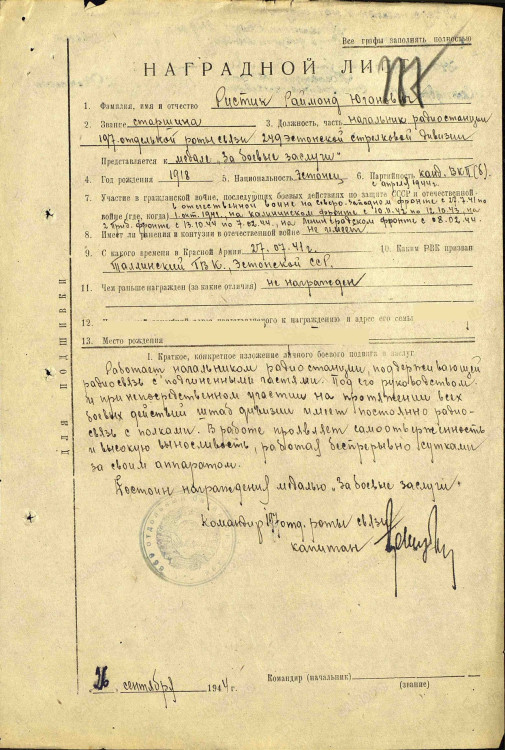 Все графы заполнять полностью
НАГРАДНОЙ ЛИСТ
1. Фамилия, имя и отчество Ристик Раймонд Юганович
2. Звание старшина 3. Должность, часть начальник радиостанции
197 отдельной роты связи 249 эстонской стрелковой дивизии
Представляется к медале „За боевые заслуги"
4. Год рождения 1918 5. Национальность Эстонец 6. Партийность канд. ВКП(б)
с апреля 1944г.
7. Участие в гражданской войне, последующих боевых действиях по защите СССР и отечественной
в отечественной войне на северо-западном фронте с 27.7.41 по
войне (где, когда) 1.окт.1941, на калининском фронте с 10.11.42 по 12.10.43, на
2 приб. фронте с 13.10.44 по 7.02.44, на Ленинградском фронте с 08.02.44.
8. Имеет ли ранения и контузии в отечественной войне не имеет
9. С какого времени в Красной Армии 27.07.41г. 10. Каким РВК призван
Таллинский ГВК, Эстонской ССР.
11. Чем раньше награжден (за какие отличия) не награжден
12. к награждению и адрес его семьи
13. Место рождения
I. Краткое, конкретное изложение личного боевого подвига и заслуг
Работает начальником радиостанции, поддерживающей
радиосвязь с подчиненными частями. Под его руководством
и при непосредственном участии на протяжении всех
боевых действий штаб дивизии имеет постоянно радио-
связь с полками. В работе проявляет самоотверженность
и высокую выносливость, работая беспрерывно сутками
за своим аппаратом.
Достоин награждения медалью „За боевые заслуги".
Командир 197 отд. роты связи
капитан
26 сентября 1944 г.
Командир (начальник)
(звание)
ДЛЯ ПОДШИВКИ